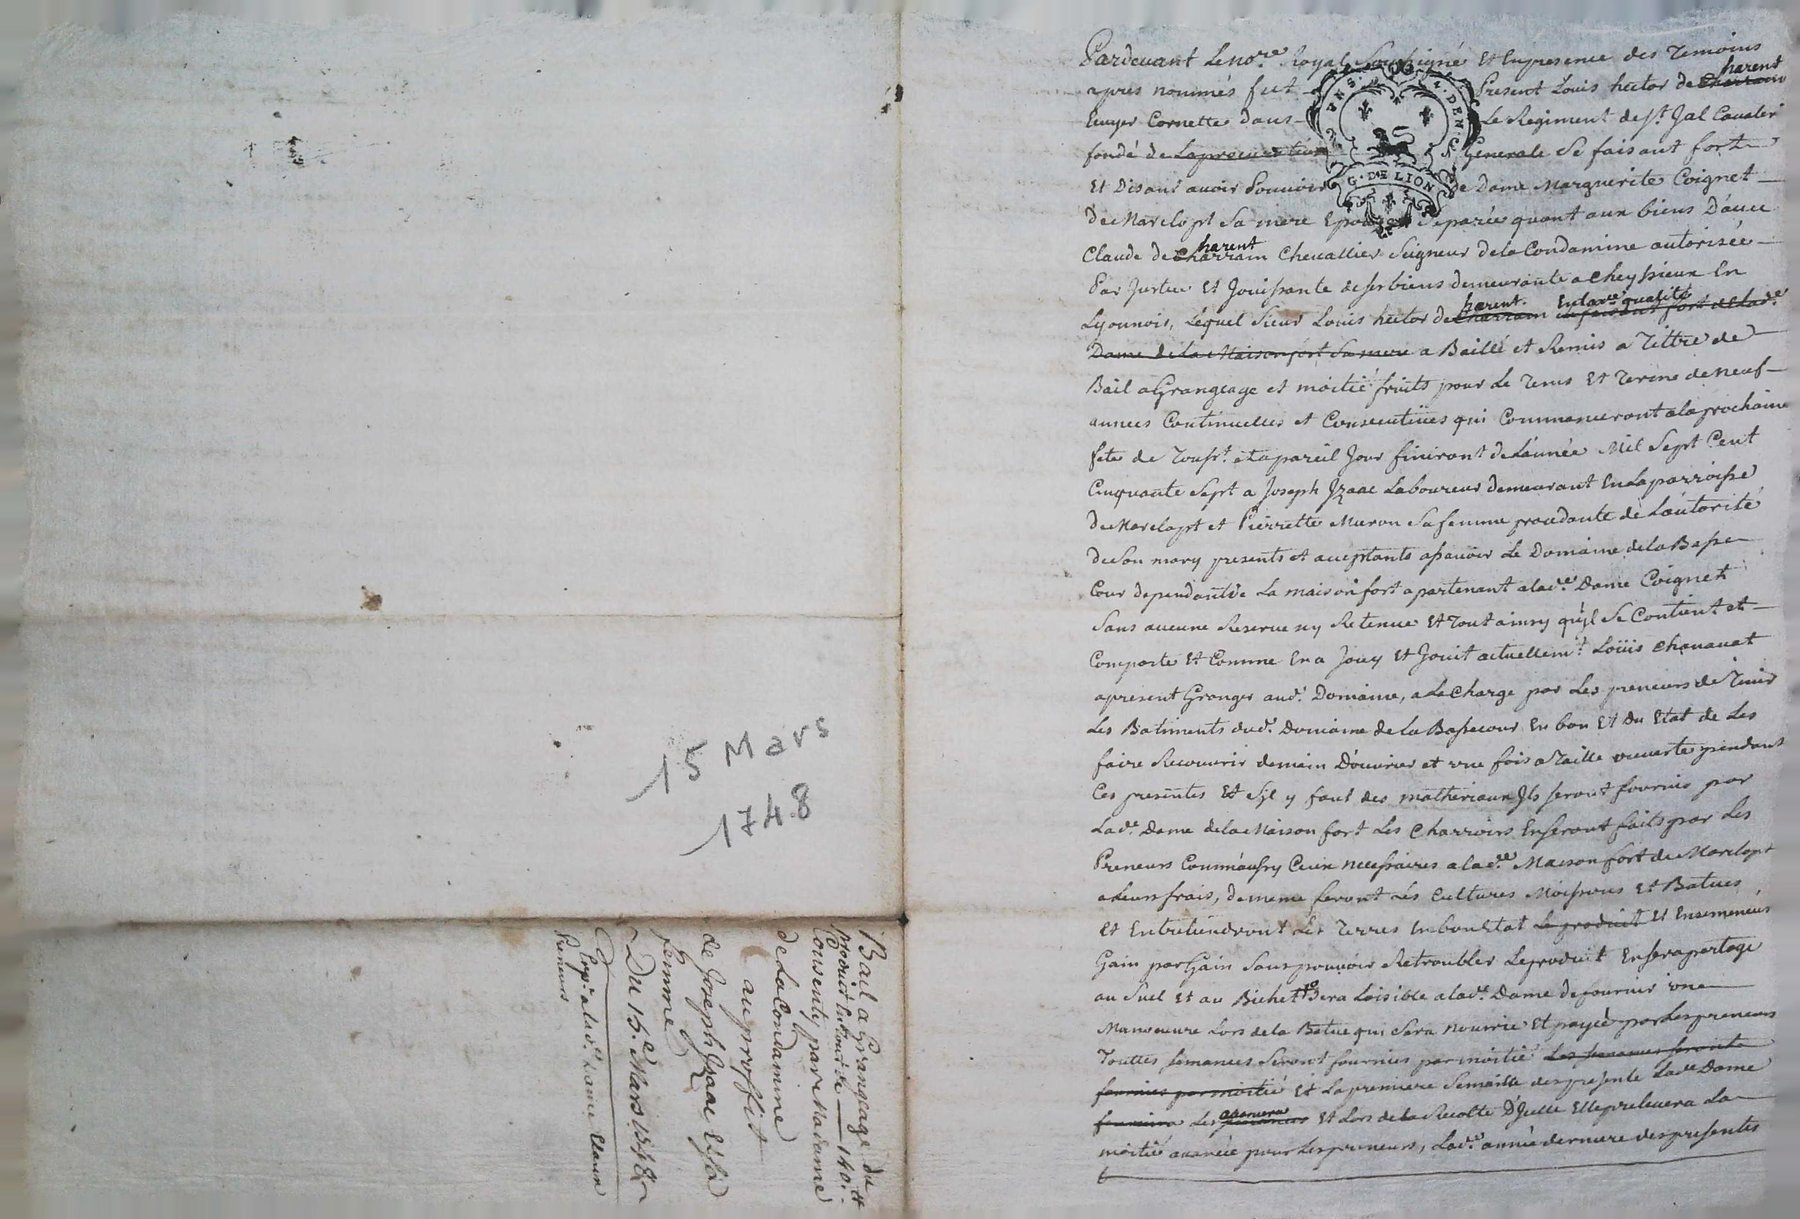 15 Mars
1748
Bail a Grangeage du
produit Entour de — 140.tt
Consenty par Madame
de La Condamine
au proffit
de Joseph Izaac Et sa
femme
Du 15.e Mars 1748
Exp.n a lad.te Dame
Preneurs
Pardevant Le no.re Royal Soussigné Et En presence des Temoins
apres nommés fut Present Louis hector de Charrain harent
Ecuyer Cornette dans Le Regiment de St. Jal Cavalerie
fondé de La procuration Generale Se faisant fort
Et Disant avoir Pouvoir de Dame Marguerite Coignet
de Marclopt Sa mere Epouse Separée quant aux biens D'avec
Claude de Charrain harent Chevallier Seigneur de la Condamine autorisée
Par Justice Et Jouissante de ses biens demeurante a Cheyssieux En
Lyonnois, Lequel Sieur Louis hector de Charrain harent. En lad.e qualité se faisant fort de Lad.e
Dame de la Maison fort Sa mere a Baillé et Remis a Tittre de
Bail a Grangeage et moitié fruits pour Le Tems Et Terme de neuf
années Continuelles et Consecutives qui Commanceront a la prochaine
fete de Touss.t et a pareil Jour finiront de L'année Mil Sept Cent
Cinquante Sept a Joseph Izaac Laboureur demeurant En La parroisse
de Marclopt et Pierrette Muron Sa femme procedante de L'autorité
de Son mary presents et acceptants assavoir Le Domaine de la Basse
Cour dependant de La maison fort apartenant a lad.e Dame Coignet
Sans aucune Reserve ny Retenue Et Tout ainsy qu'il Se Contient et
Comporte Et Comme En a Jouy Et Jouit actuellem.t Loüis Chavanat
apresent Granger aud.t Domaine, a La Charge par Les preneurs de Tenir
Les Batiments dud.t Domaine de la Basse cour En bon Et Du Etat de Les
faire Recouvrir de main D'ouvrier et une fois a Taille ouverte pendant
Ces presentes Et S'il y faut des matheriaux Ils seront fournis par
Lad.e Dame de la Maison fort Les Charrois En seront faits par Les
Preneurs Comm'aussy Ceux necessaires a lad.e Maison fort de Marclopt
a Leurs frais, de meme feront Les Cultures Moissons Et Batues
et Entretiendront Les Terres En bon Etat Le produit Et Ensemencees
Gain par Gain Sans pouvoir Retroubler Le produit En sera partagé
au Suel Et au Bichet Sera Loisible a lad.e Dame de fournir une
Manoeuvre Lors de la Batue qui Sera nourrie Et payée par Les preneurs
Touttes semances Seront fournies par moitié Les semances seront
fournies par moitié Et La premiere Semaille des presente Lad.e Dame
fournira Les semances avancera Et Lors de la Recolte D'Icelle Elle prelevera La
moitié avancée pour Les preneurs, Lad.e année derniere des presentes